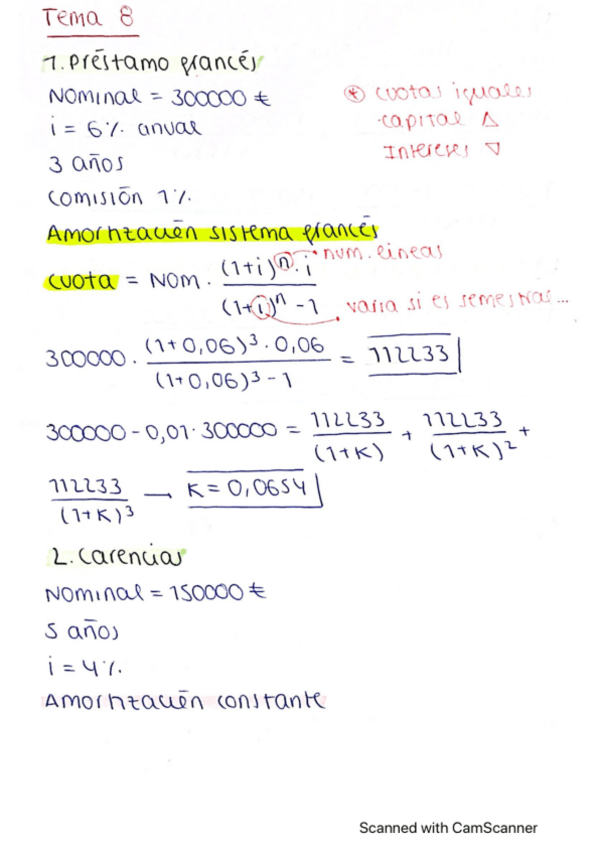 Tema 8
1. Préstamo francés
Nominal = 300000 €
i = 6% anual
3 años
Comisión 1%
* cuotas iguales
· capital △
Intereses ▽
Amortización sistema francés
cuota = Nom · (1+i)^n · i / (1+i)^n - 1
num. líneas
varía si es semestras...
300000 · (1+0,06)^3 · 0,06 / (1+0,06)^3 - 1 = 112233
300000 - 0,01 · 300000 = 112233 / (1+K) + 112233 / (1+K)^2 +
112233 / (1+K)^3 → K = 0,0654
2. Carencias
Nominal = 150000 €
5 años
i = 4%
Amortización constante
Scanned with CamScanner